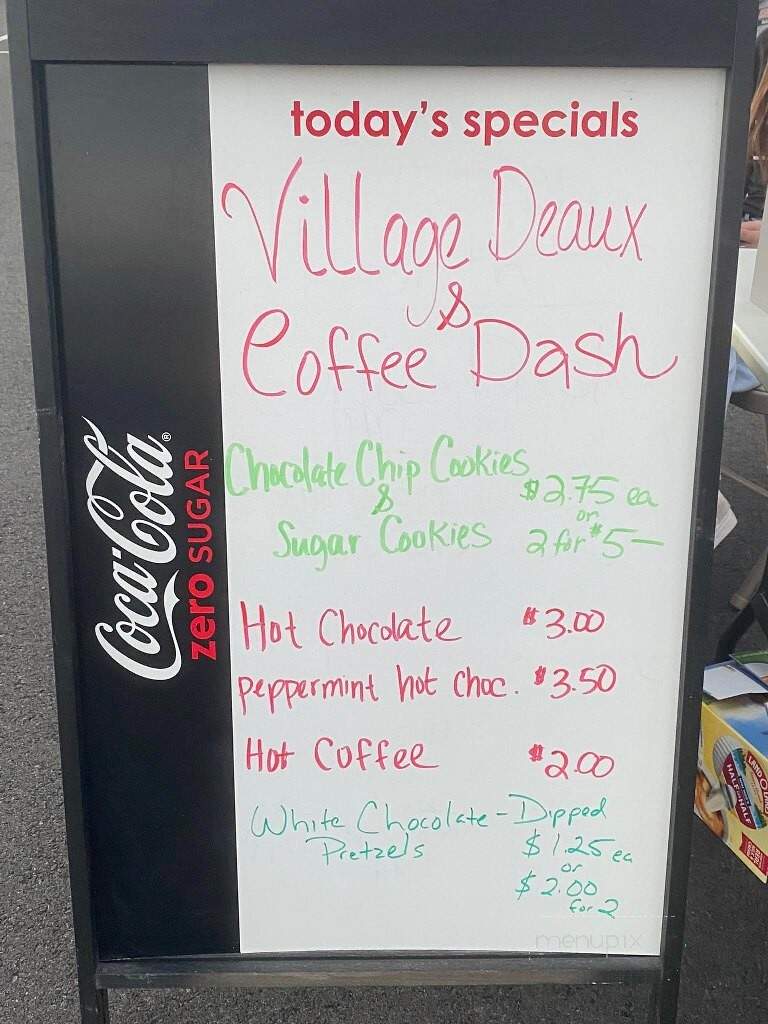 today's specials
Village Deaux
&
Coffee Dash
Chocolate Chip Cookies
&
Sugar Cookies
$2.75 ea
or
2 for $5—
Hot Chocolate $3.00
peppermint hot choc. $3.50
Hot Coffee $2.00
White Chocolate-Dipped
Pretzels $1.25 ea
or
$2.00
for 2
Coca-Cola®
zero SUGAR
LAND O LAKES
HALF & HALF
menupix